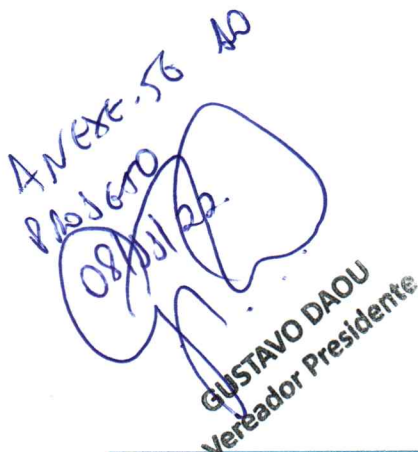 ANEXE-SE AO
PROJETO
08/11/22.
GUSTAVO DAOU
Vereador Presidente